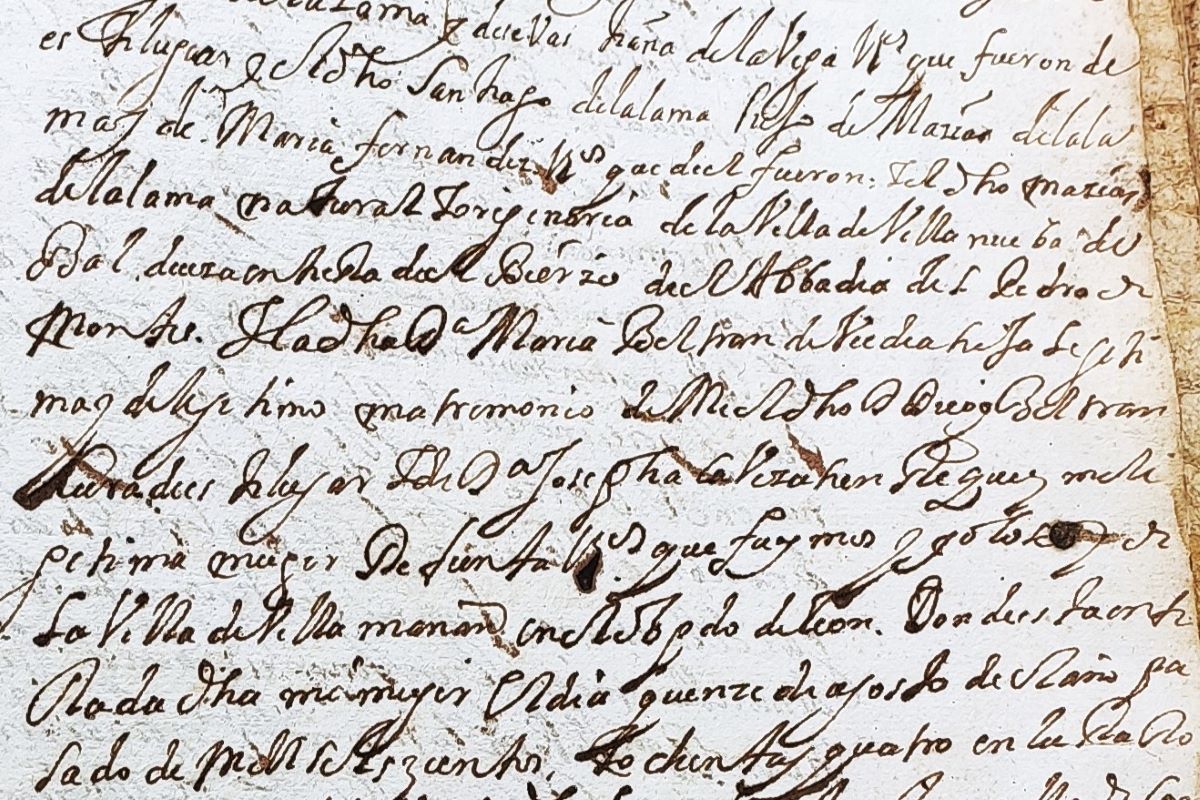 de la lama y de seVastiana de la Vega Vºs que fueron de
este lugar y el dho Santiago de la lama hijo de Matias de la la
ma y de Maria fernandez Vºs que del fueron; Y el dho matias
de la lama natural Y origenario de la Villa de Villanueba de
Bal deeza en tierra del Bierzo del Abbadia de S Pedro de
Montes. Y la dha Dª Maria Beltran de Viedia hija Legeti
ma y de lejetimo matremonio de Mi el dho D Diego Beltran
Cura dees te lugar Y de Dª Josepha Caveza ken Reguez me li
getima muger De funta Vºs que fuymos y
La Villa de Villamanan en el obpdo de Leon. Donde esta enter
Rada dha mi muger el dia quenze de agosto del año pa
sado de Mill setezientos, Y ochenta y quatro en la